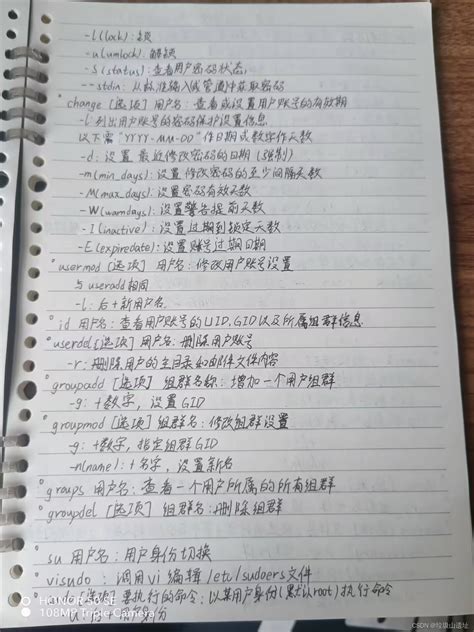 -l(lock): 锁
-u(umlock): 解锁
-S(status): 查看用户密码状态,
--stdin: 从标准输入(或管道)中获取密码
change [选项] 用户名: 查看或设置用户账号的有效期
-l 列出用户账号的密码保护设置信息
以下需 "YYYY-MM-DD" 作日期或数字作天数
-d: 设置 最近修改密码的日期 (强制)
-m(min_days): 设置修改密码的至少间隔天数
-M(max_days): 设置密码有效天数
-W(warndays): 设置警告提前天数
-I(inactive): 设置过期到锁定天数
-E(expiredate): 设置账号过期日期
usermod [选项] 用户名: 修改用户账号设置
与 useradd 相同
-l: 后+新用户名
id 用户名: 查看用户账号的UID,GID以及所属组群信息
userdel[选项] 用户名: 删除用户账号
-r: 删除用户的主目录如邮件文件内容
groupadd [选项] 组群名称: 增加一个用户组群
-g: +数字, 设置GID
groupmod [选项] 组群名: 修改组群设置
-g: +数字, 指定组群GID
-n(name): +名字, 设置新名
groups 用户名: 查看一个用户所属的所有组群
groupdel [选项] 组群名: 删除组群
su 用户名: 用户身份切换
visudo : 调用vi编辑 /etc/sudoers文件
[选项] 要执行的命令: 以某用户身份(默认root)执行命令
HONOR 50 SE
108MP Triple Camera
CSDN @垃圾山遗址